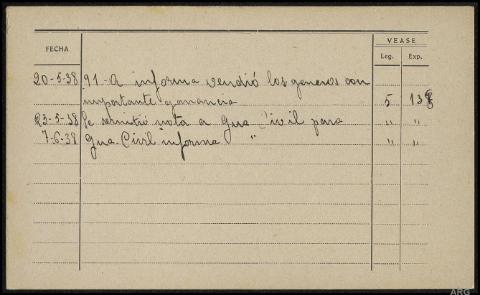 VEASE
FECHA Leg. Exp.
20-5-38 91-A informa vendió los generos con
importante ganancia 5 13
23-5-38 Se remitió nota a Gua Civil para " "
7-6-38 Gua. Civil informa " " "
ARG